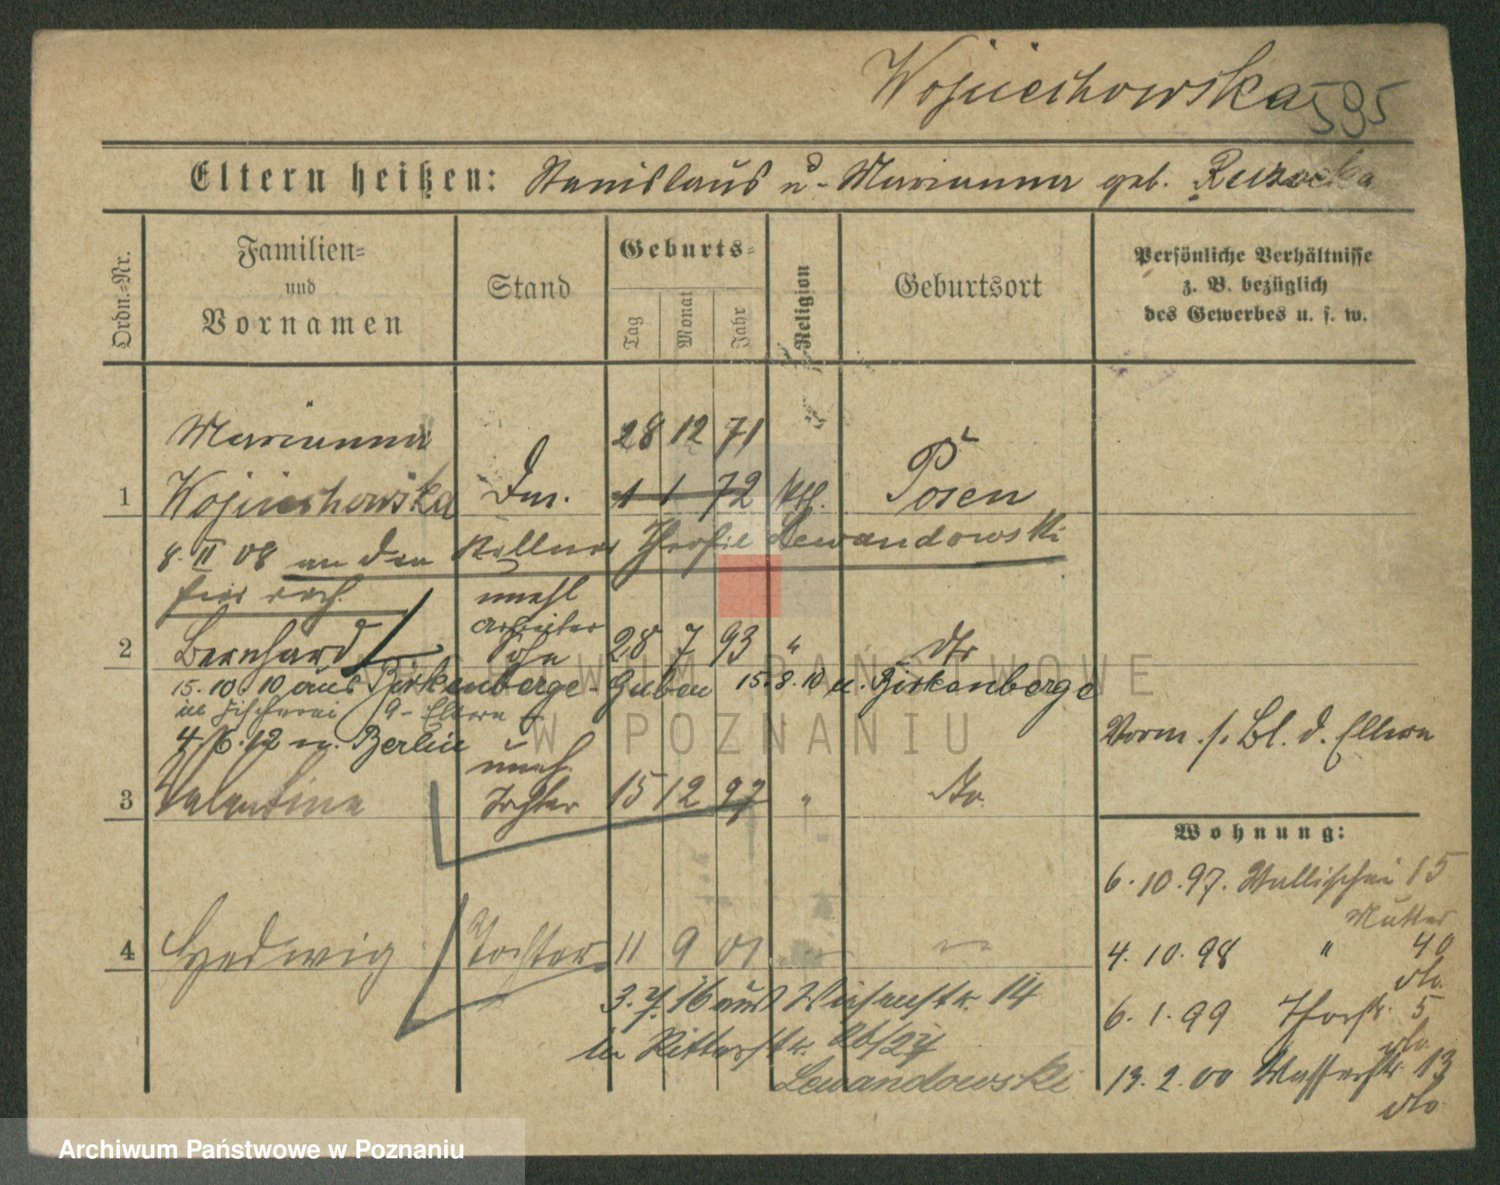 Wojciechowska 595
Eltern heißen: Stanislaus u. Marianna geb.
Ordn.-Nr.
Familien-
und
Vornamen
Stand
Geburts-
Tag
Monat
Jahr
Religion
Geburtsort
Persönliche Verhältnisse
z. B. bezüglich
des Gewerbes u. s. w.
Marianna 28 12 71
1 Wojciechowska 1 1 72 kth. Posen
8. II 08 an den Kellner Theofil Lewandowski
unehl
Arbeiter
2 Bernhard Sohn 28 7 93 " dto
15.10.10 aus Birkenberge - Guben 15.8.10 n. Birkenberge
Eltern
4/6.12 n. Berlin
Vorm. s. Bl. d. Eltern
uneh.
3 Valentine Tochter 15 12 97 " do.
Wohnung:
6.10.97. Wallischei 15
Mutter
4 Hedwig Tochter 11 9 01
4.10.98 " 40
dto.
3.7.16 aus Wiesenstr. 14
6.1.99 Thorstr. 5
dto.
in Ritterstr. 26/27
Lewandowski
13.2.00 Wasserstr. 13
dto.
ARCHIWUM PAŃSTWOWE
W POZNANIU
Archiwum Państwowe w Poznaniu